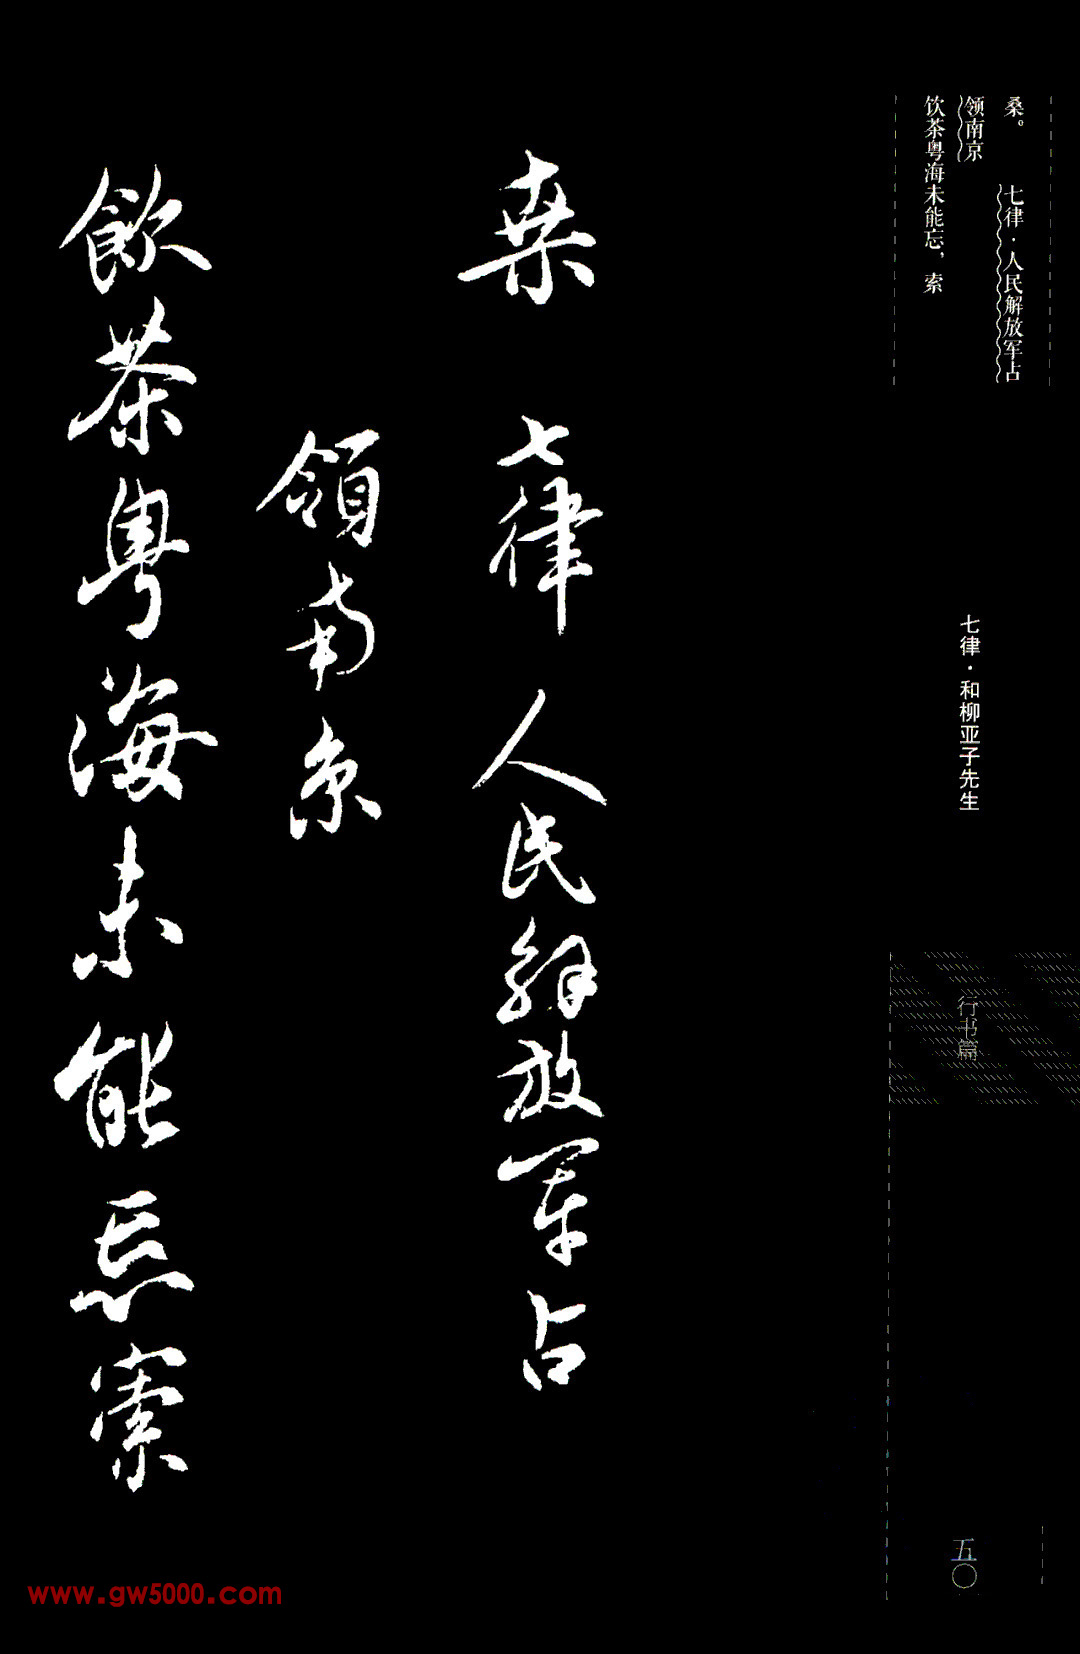 桑。　七律·人民解放军占
领南京
饮茶粤海未能忘，索
七律·和柳亚子先生
行书篇
五〇
桑　七律　人民解放军占
領南京
飲茶粤海未能忘索
www.gw5000.com